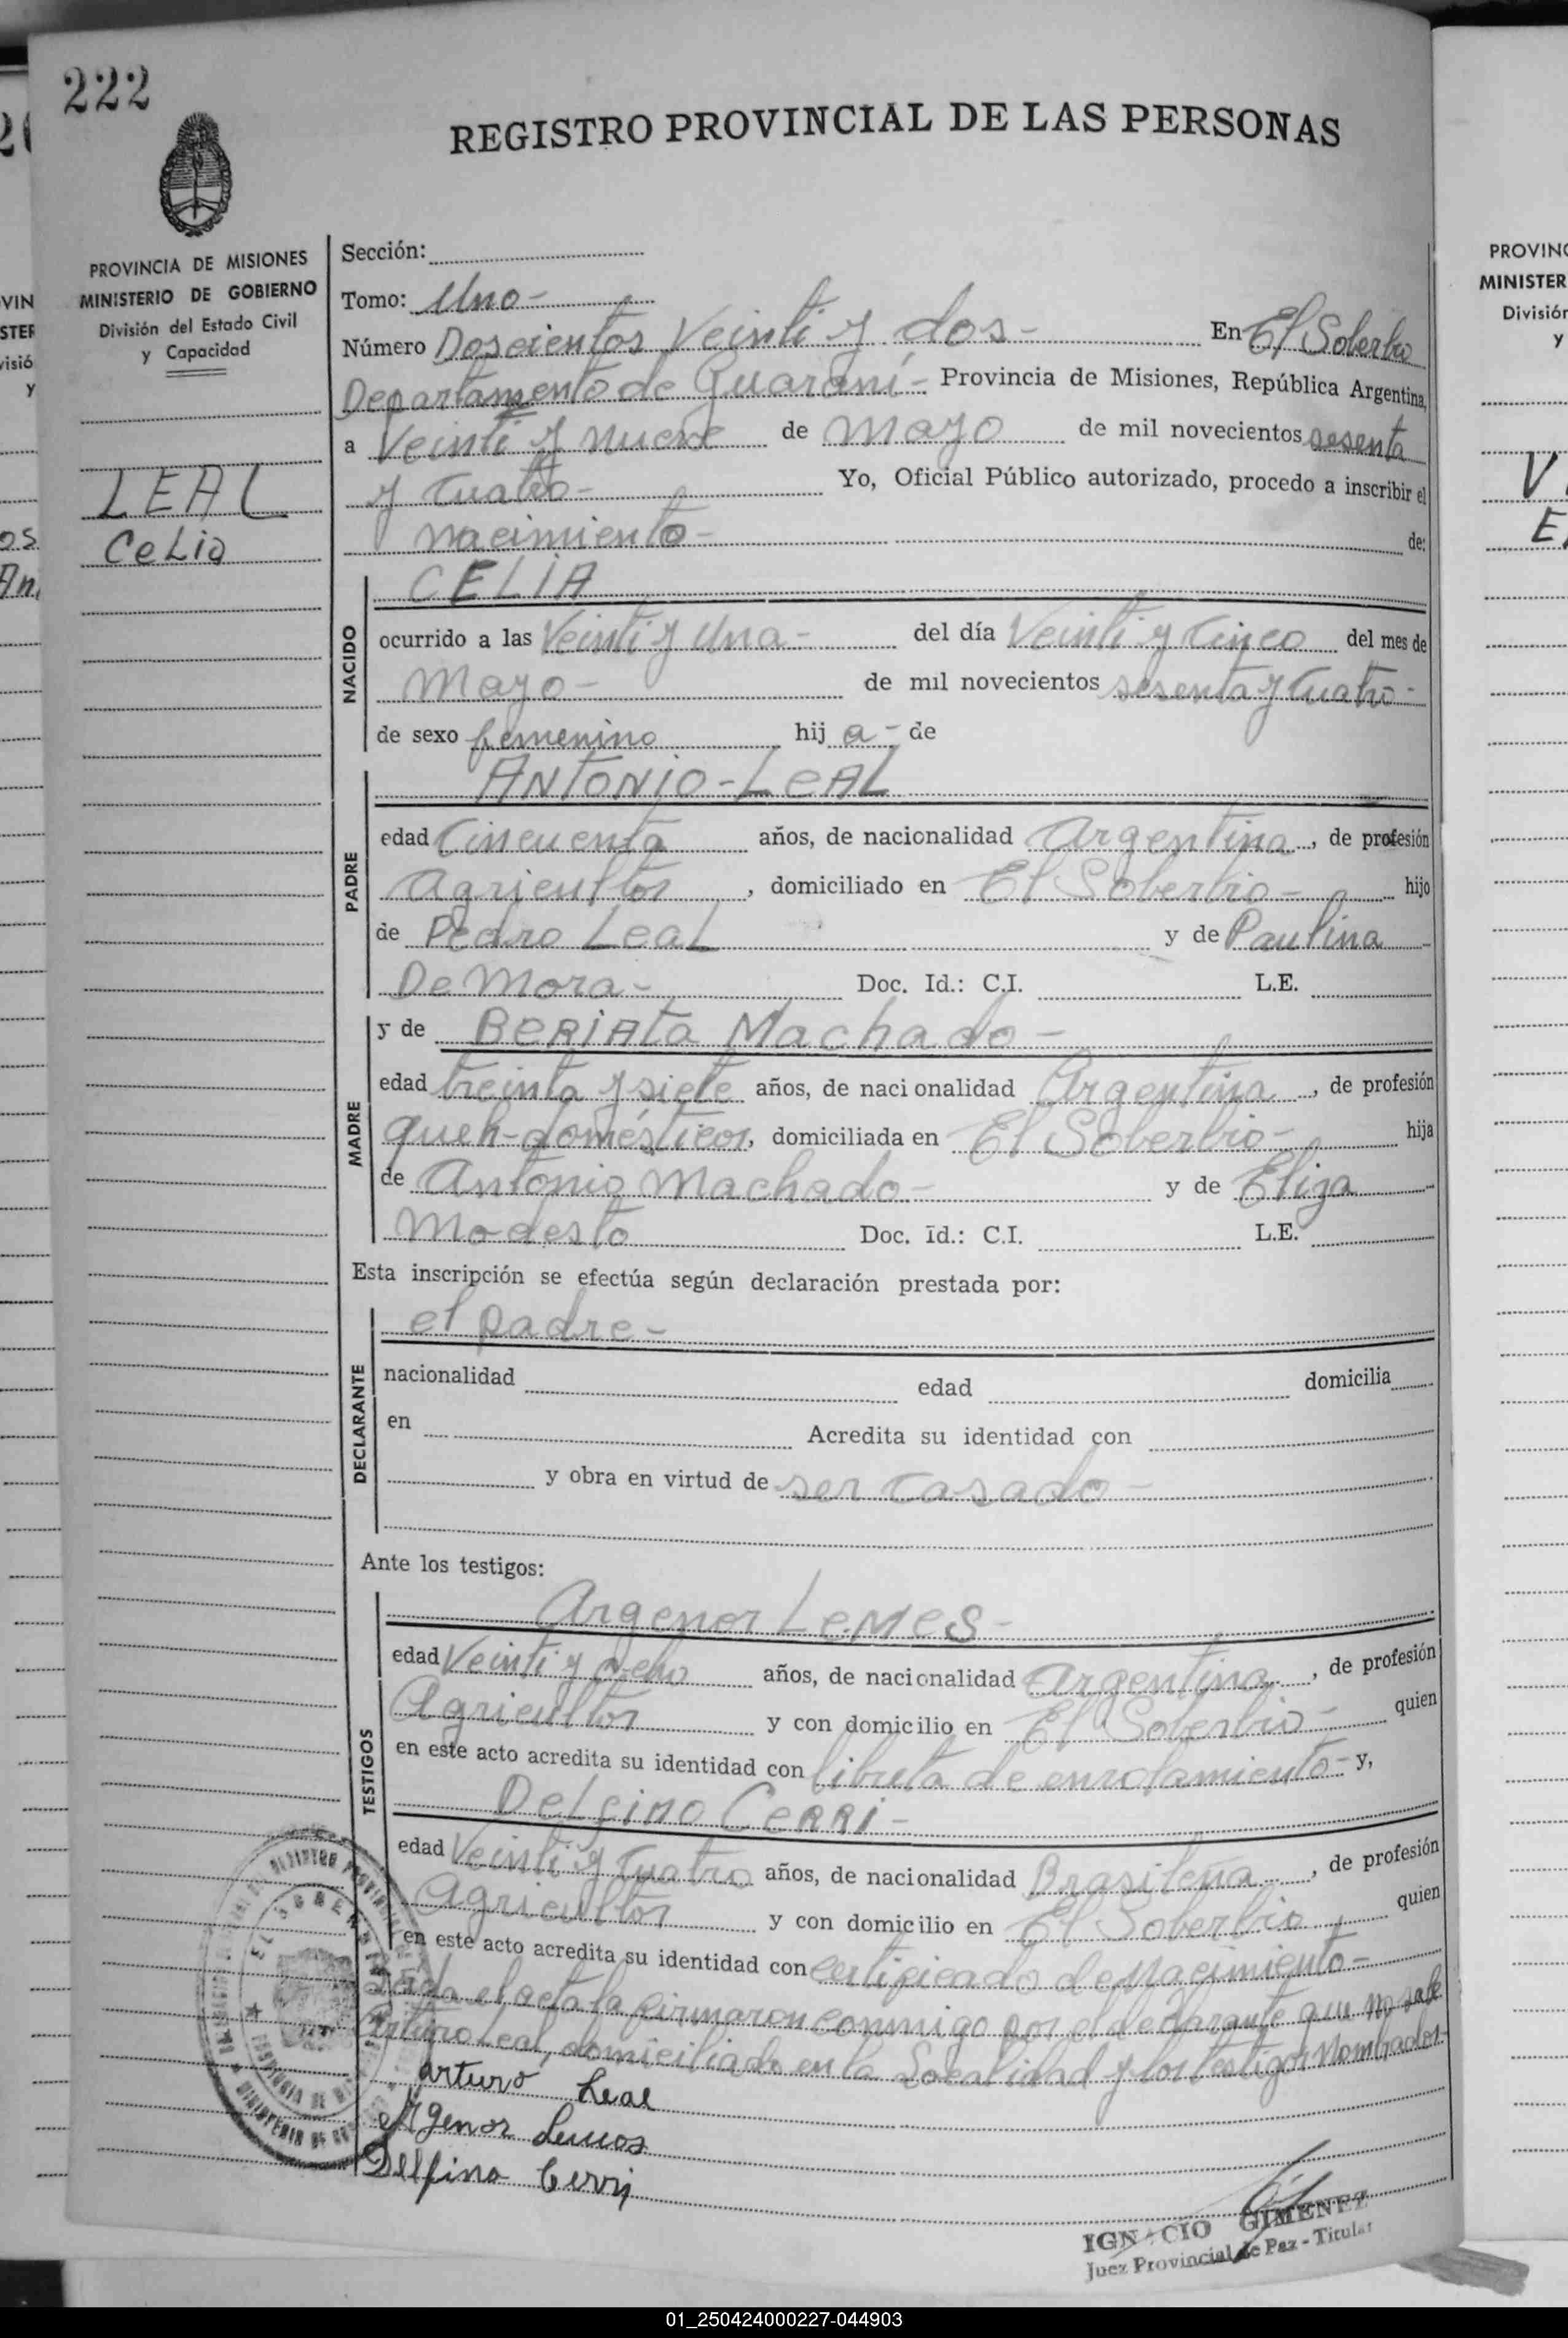 222
REGISTRO PROVINCIAL DE LAS PERSONAS
PROVINCIA DE MISIONES
MINISTERIO DE GOBIERNO
División del Estado Civil
y Capacidad
LEAL
Celia
Sección:
Tomo: Uno-
Número Doscientos Veinti y dos- En El Soberbio
Departamento de Guaraní- Provincia de Misiones, República Argentina,
a Veinti y nueve de mayo de mil novecientos sesenta
y cuatro- Yo, Oficial Público autorizado, procedo a inscribir el
nacimiento- de:
NACIDO
CELIA
ocurrido a las Veinti y Una- del día Veinti y Cinco del mes de
Mayo- de mil novecientos sesenta y Cuatro-
de sexo femenino hij a- de
PADRE
ANTONIO-LeAL
edad Cincuenta años, de nacionalidad Argentina, de profesión
Agricultor, domiciliado en El Soberbio- hijo
de Pedro Leal y de Paulina
De Mora- Doc. Id.: C.I. L.E.
MADRE
y de BeRiAta Machado-
edad treinta y siete años, de naci onalidad Argentina, de profesión
queh-domésticos, domiciliada en El Soberbio- hija
de Antonio Machado- y de Eliza
Modesto Doc. Id.: C.I. L.E.
Esta inscripción se efectúa según declaración prestada por:
DECLARANTE
el padre-
nacionalidad edad domicilia
en Acredita su identidad con
y obra en virtud de ser casado-
Ante los testigos:
TESTIGOS
Argenor LeMes-
edad Veinti y ocho años, de nacionalidad Argentina, de profesión
Agricultor y con domicilio en El Soberbio- quien
en este acto acredita su identidad con libreta de enrolamiento- y,
DeLfino CeRRi-
edad Veinti y Cuatro años, de nacionalidad Brasileña, de profesión
Agricultor y con domicilio en El Soberbio quien
en este acto acredita su identidad con certificado de Nacimiento-
el acta la firmaron conmigo por el declarante que no sabe
Arturo Leal, domiciliado en la Localidad y los testigos Nombrados-
Arturo Leal
Agenor Lemos
Delfino Cerri
IGNACIO GIMENEZ
Juez Provincial de Paz - Titular
01_250424000227-044903